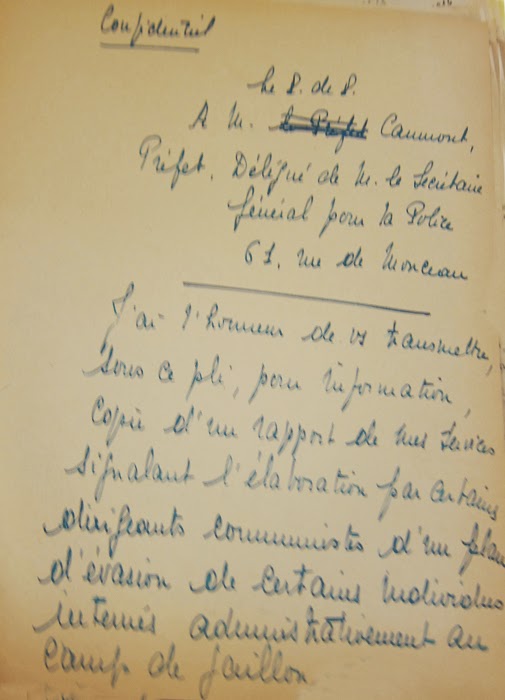 Confidentiel
Le P. de P.
A M. le Préfet Caumont,
Préfet. Délégué de M. le Secrétaire
Général pour la Police
61, rue de Monceau
J'ai l'honneur de vs transmettre,
sous ce pli, pour information,
copie d'un rapport de mes services
signalant l'élaboration par certains
dirigeants communistes d'un plan
d'évasion de certains individus
internés administrativement au
camp de Gaillon